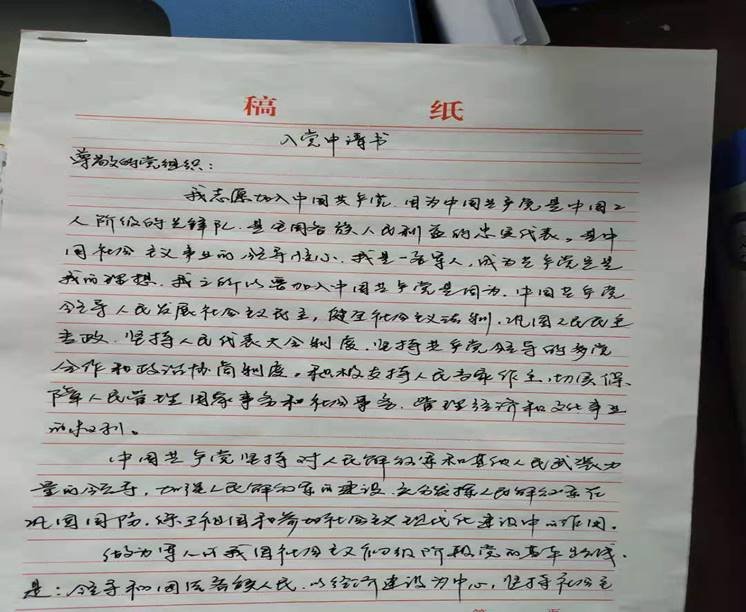 稿 纸
入党申请书
尊敬的党组织：
我志愿加入中国共产党，因为中国共产党是中国工
人阶级的先锋队，是全国各族人民利益的忠实代表。是中
国社会主义事业的领导核心。我是一名军人，成为共产党员是
我的理想。我之所以要加入中国共产党是因为，中国共产党
领导人民发展社会主义民主，健全社会主义法制，巩固人民民主
专政，坚持人民代表大会制度，坚持共产党领导的多党
合作和政治协商制度。积极支持人民当家作主，切实保
障人民管理国家事务和社会事务，管理经济和文化事业
的权利。
中国共产党坚持对人民解放军和其他人民武装力
量的领导，加强人民解放军的建设，充分发挥人民解放军在
巩固国防，保卫祖国和参加社会主义现代化建设中的作用。
做为军人 我国社会主义初级阶段党的基本路线
是：领导和团结各族人民，以经济建设为中心，坚持